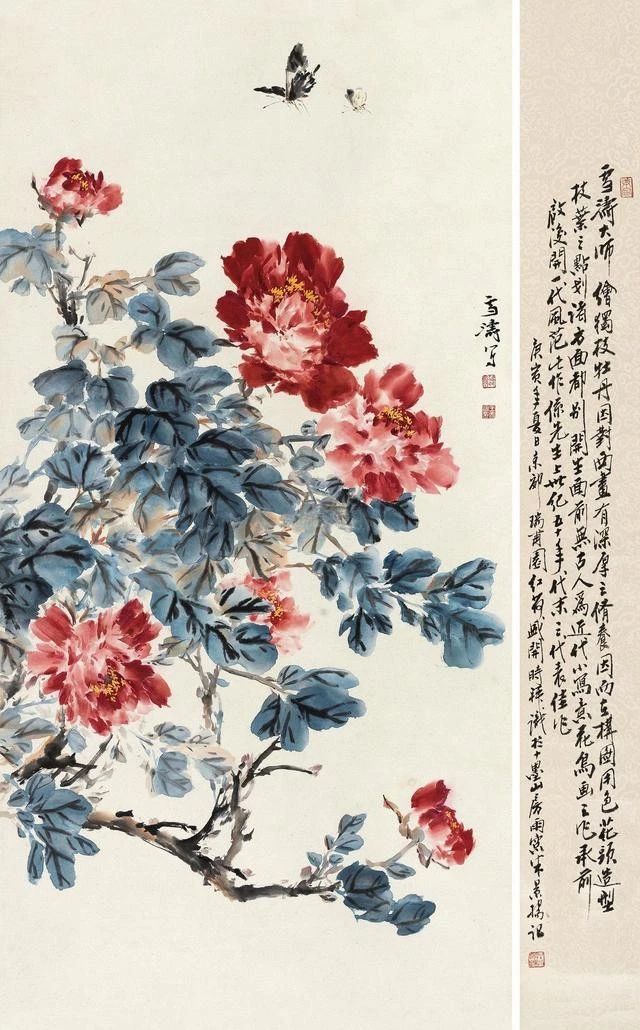 雪濤寫
雪濤大師繪獨枝牡丹因對西畫有深厚之脩養因而在構圖用色花頭造型
枝葉之點划諸方面都別開生面前無古人爲近代小寫意花鳥画之作承前
啟後開一代風范此作係先生上世纪五十年代末之代表佳作
庚寅年夏日京郊瑞甫園紅芍盛開時拜識於十墨山房雨窗米景揚記